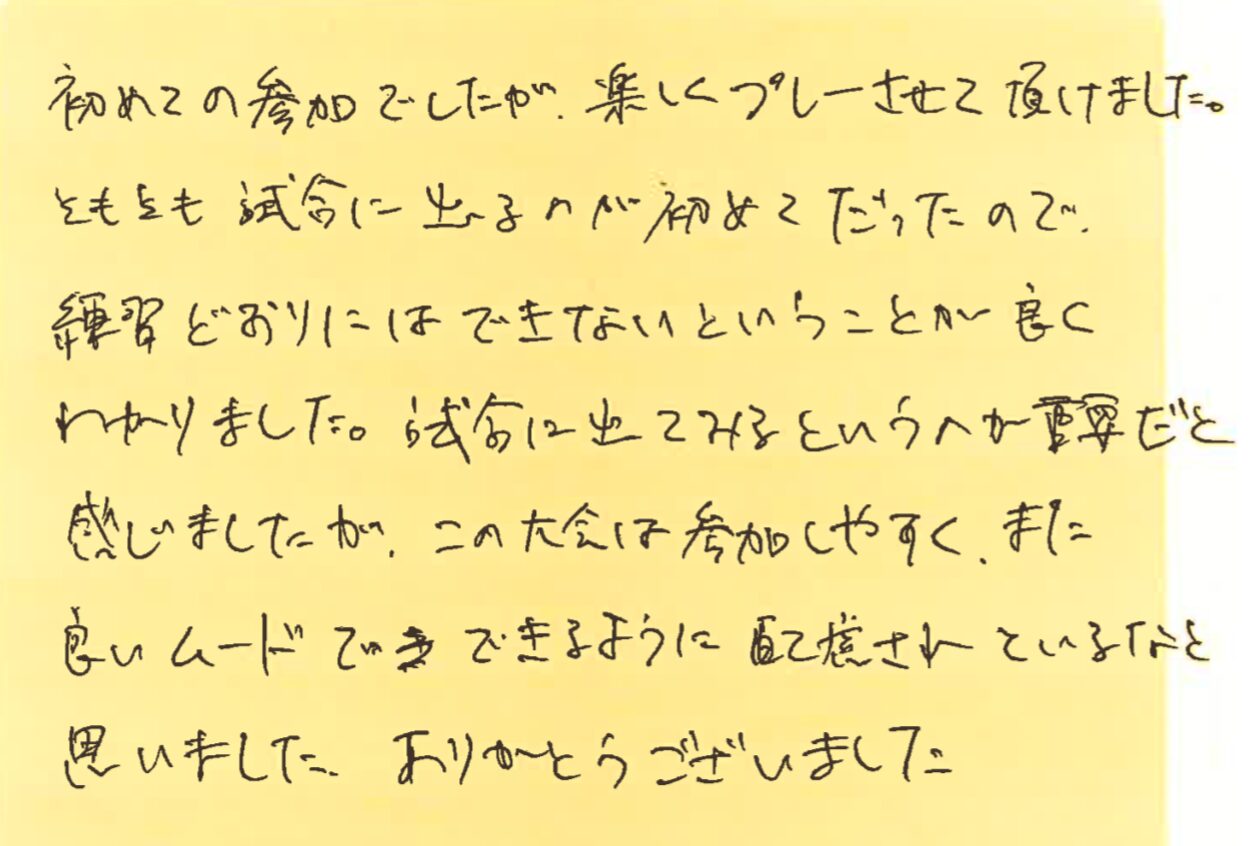 初めての参加でしたが、楽しくプレーさせて頂けました。
ともとも試合に出るのが初めてだったので、
練習どおりにはできないということが良く
わかりました。試合に出てみるというのが重要だと
感じましたが、この大会は参加しやすく、また
良いムードで できるように配慮されているなと
思いました、ありがとうございました